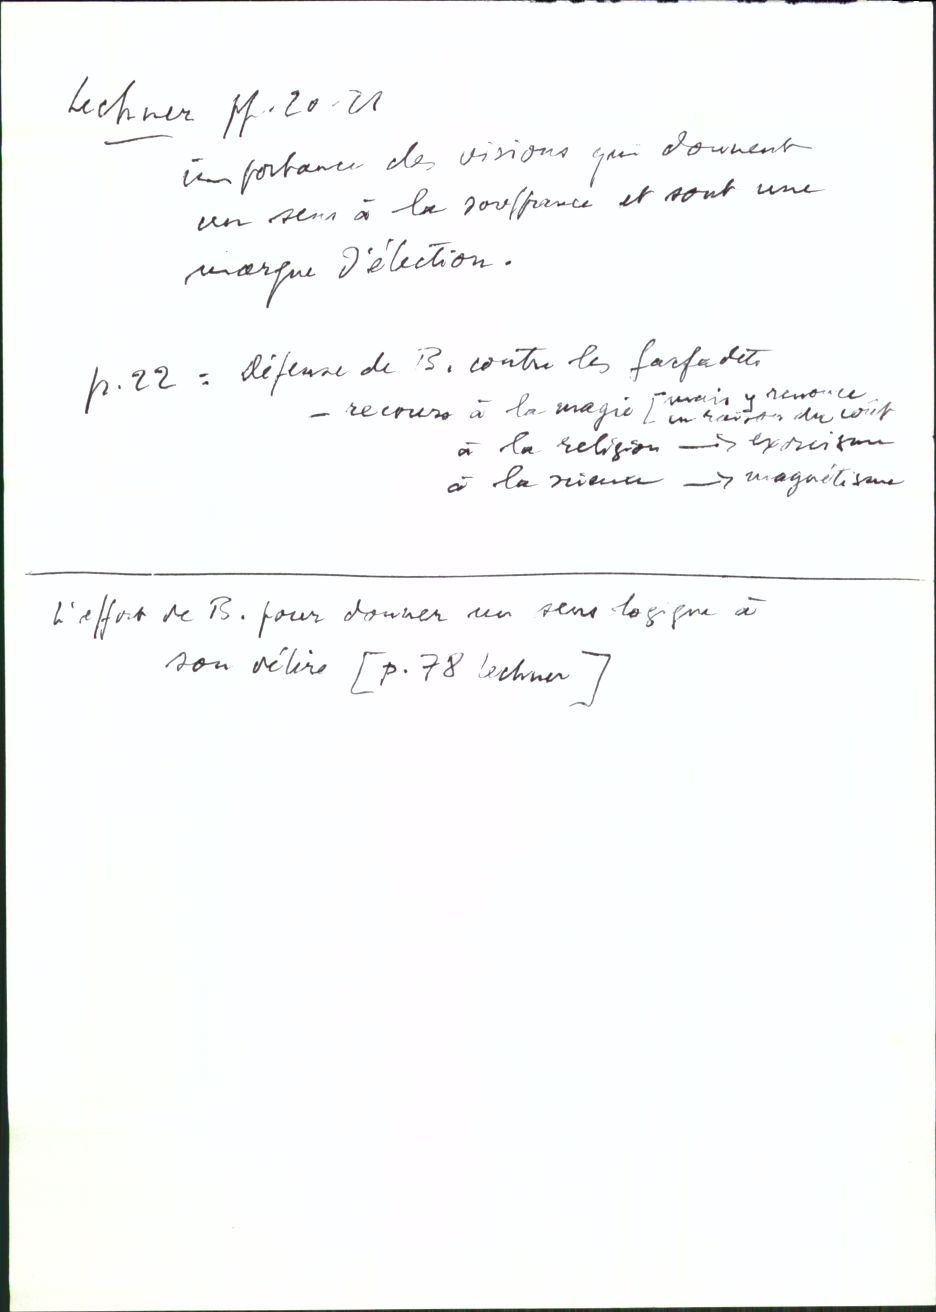 Lechner pp. 20-21
importance des visions qui donnent
un sens à la souffrance et sont une
marque d'élection.
p. 22 = Défense de B. contre les farfadets
- recours à la magie [mais y renonce
en raison du coût
à la religion → exorcisme
à la science → magnétisme
L'effort de B. pour donner un sens logique à
son délire [p. 78 Lechner]